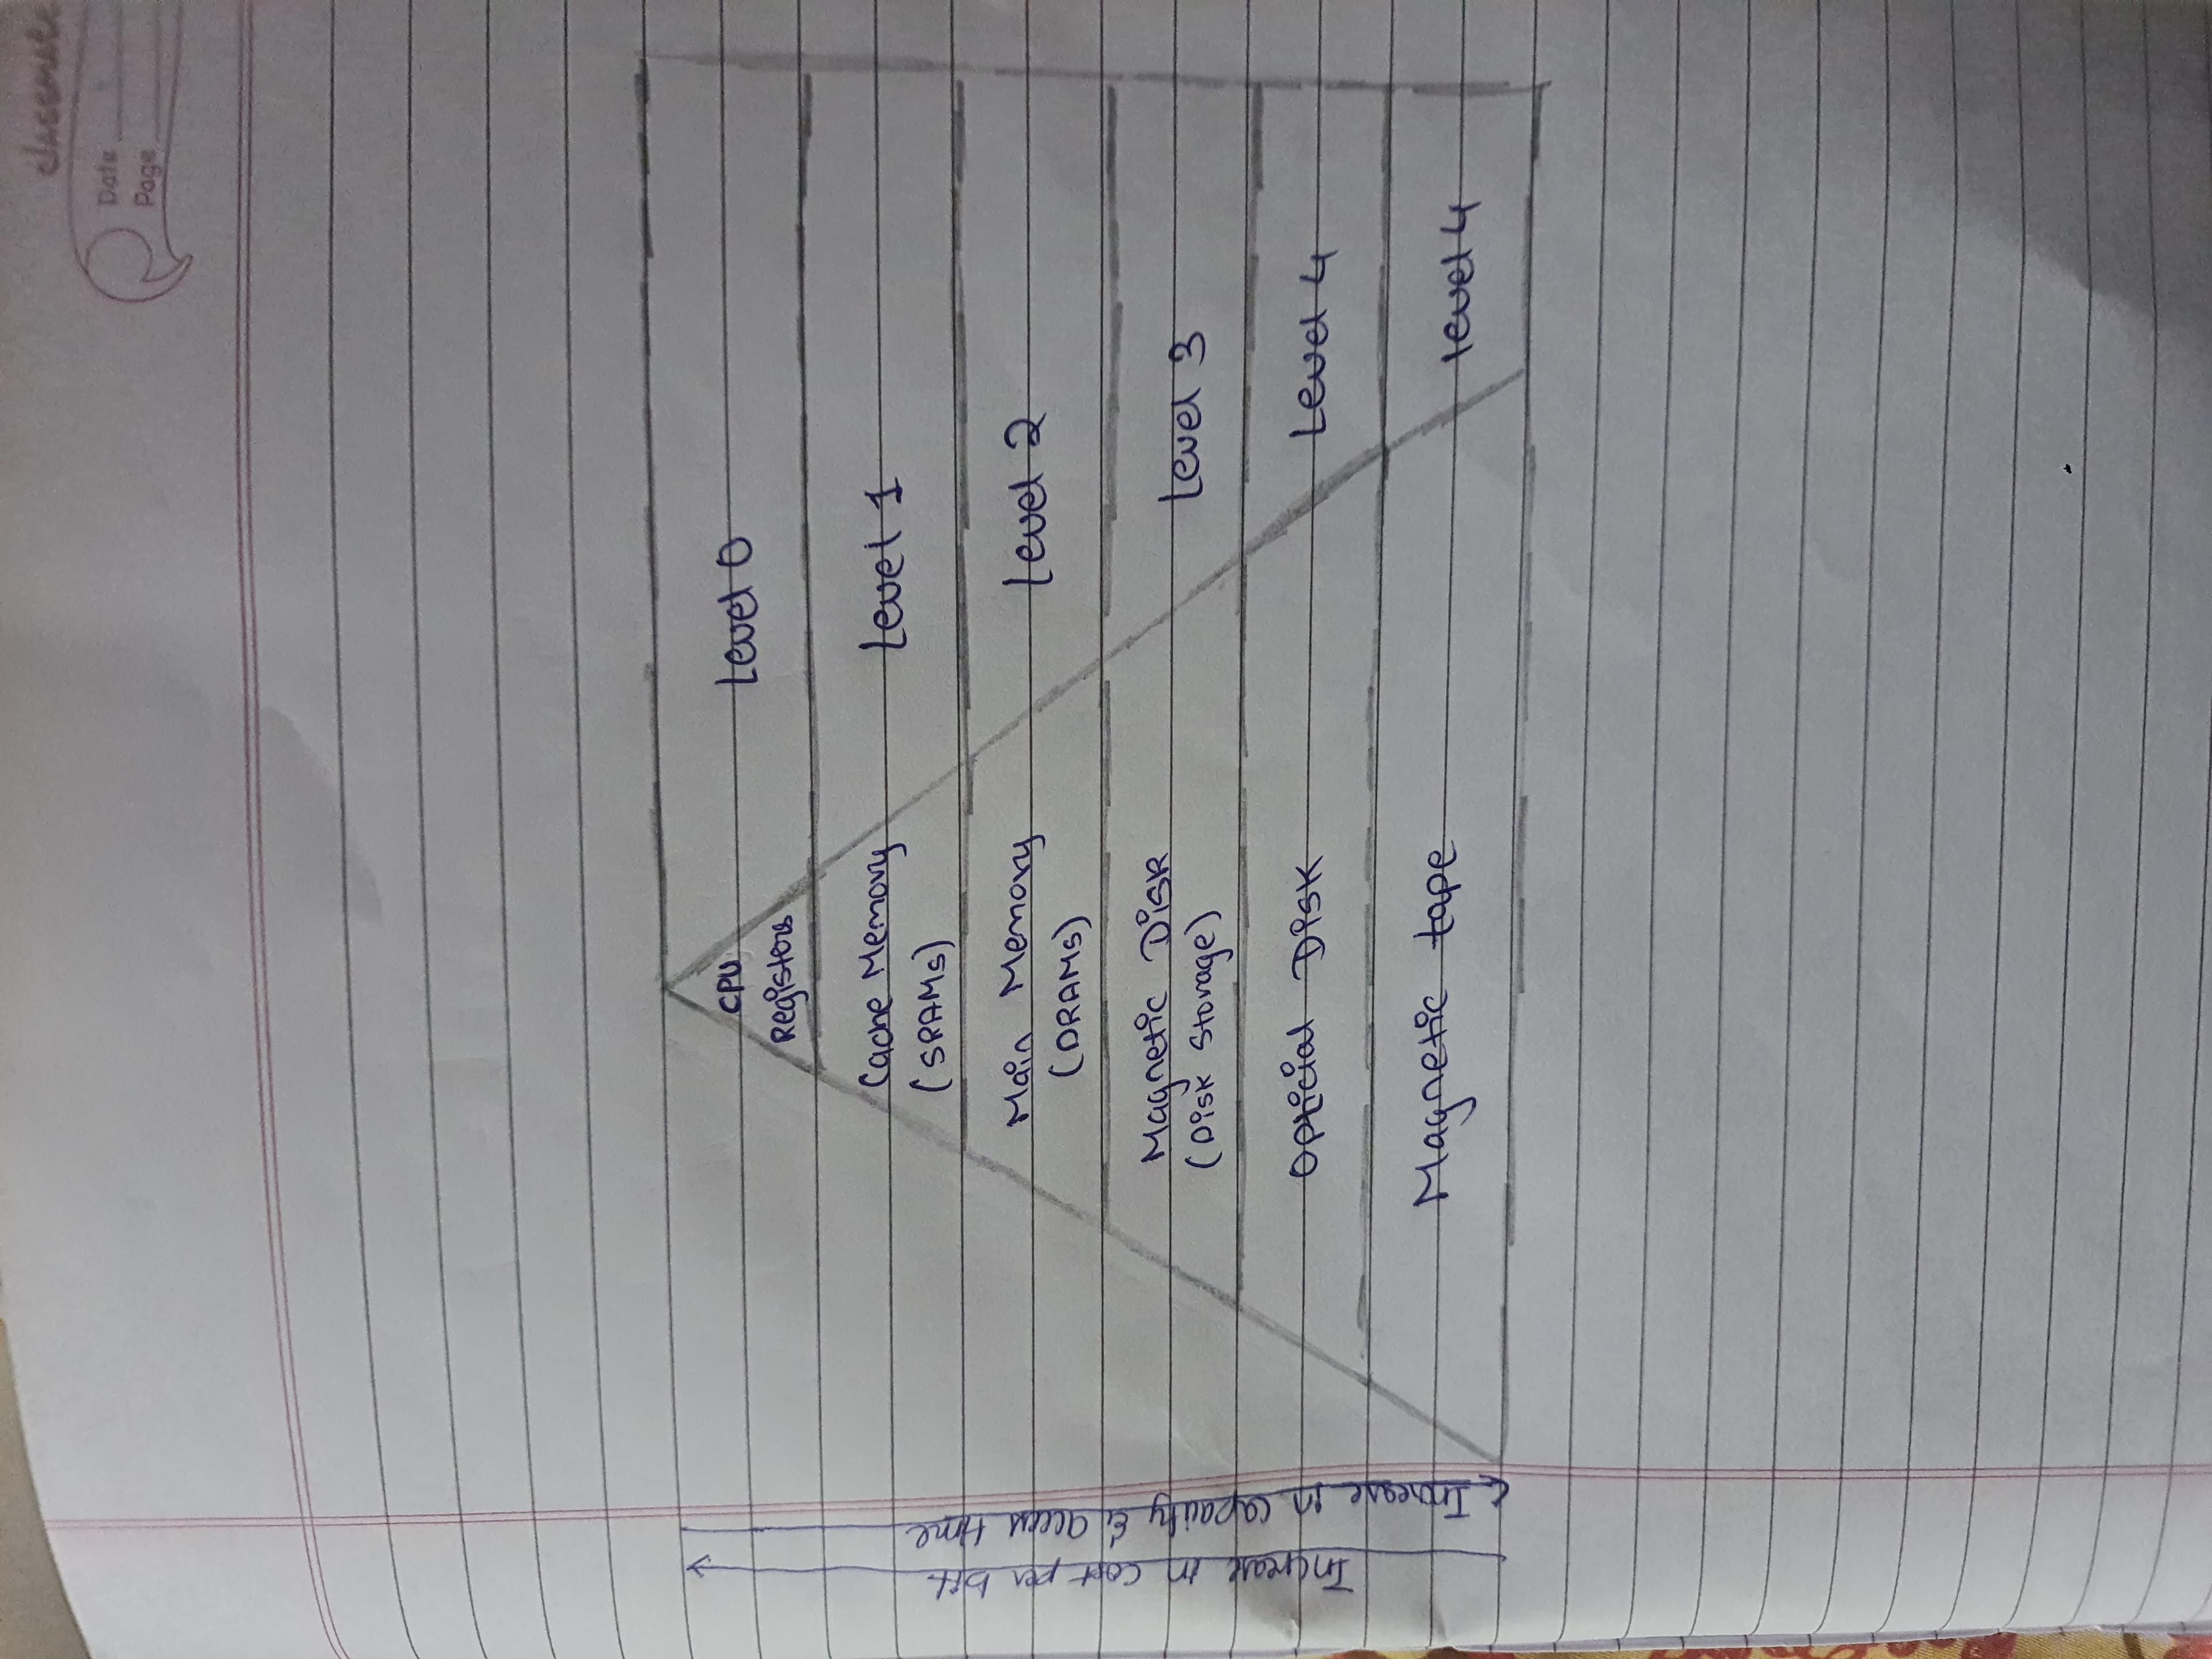 classmate
Date
Page
Level 0
CPU
Registers
Level 1
Cache Memory
(SRAMs)
Level 2
Main Memory
(DRAMs)
Level 3
Magnetic Disk
(Disk Storage)
Level 4
Opticial Disk
level 4
Magnetic tape
Increase in capacity & access time
Increase in cost per bit